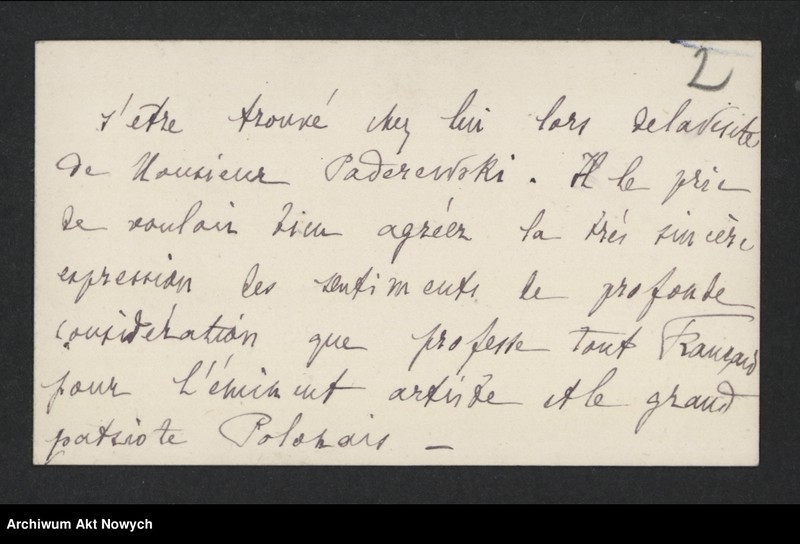 2
s'etre trouvé chez lui lors de la visite
de Monsieur Paderewski. Il le prie
de vouloir bien agréer la très sincère
expression des sentiments de profonde
considération que professe tout Français
pour l'éminent artiste et le grand
patriote Polonais —
Archiwum Akt Nowych